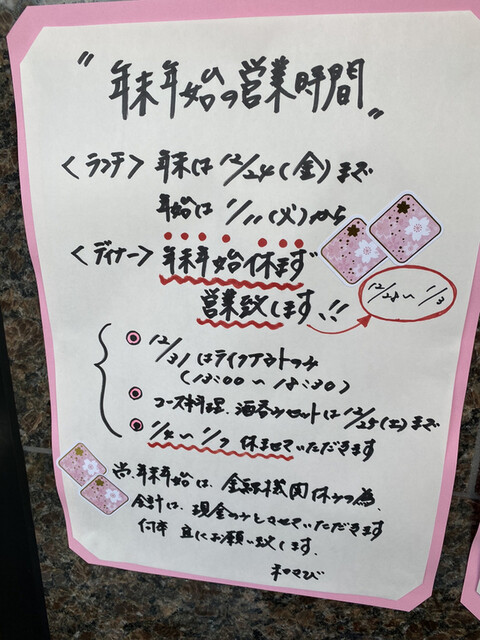 "年末年始の営業時間"
〈ランチ〉年末は12/24(金)まで
年始は1/11(火)から
〈ディナー〉年末年始休まず
営業致します!!
12/28〜1/3
12/31はテイクアウトのみ
(13:00〜18:30)
コース料理、酒呑みセットは12/25(土)まで
1/4〜1/7休ませていただきます
尚、年末年始は、金融機関休みの為、
会計は、現金のみとさせていただきます
何卒宜しくお願い致します。